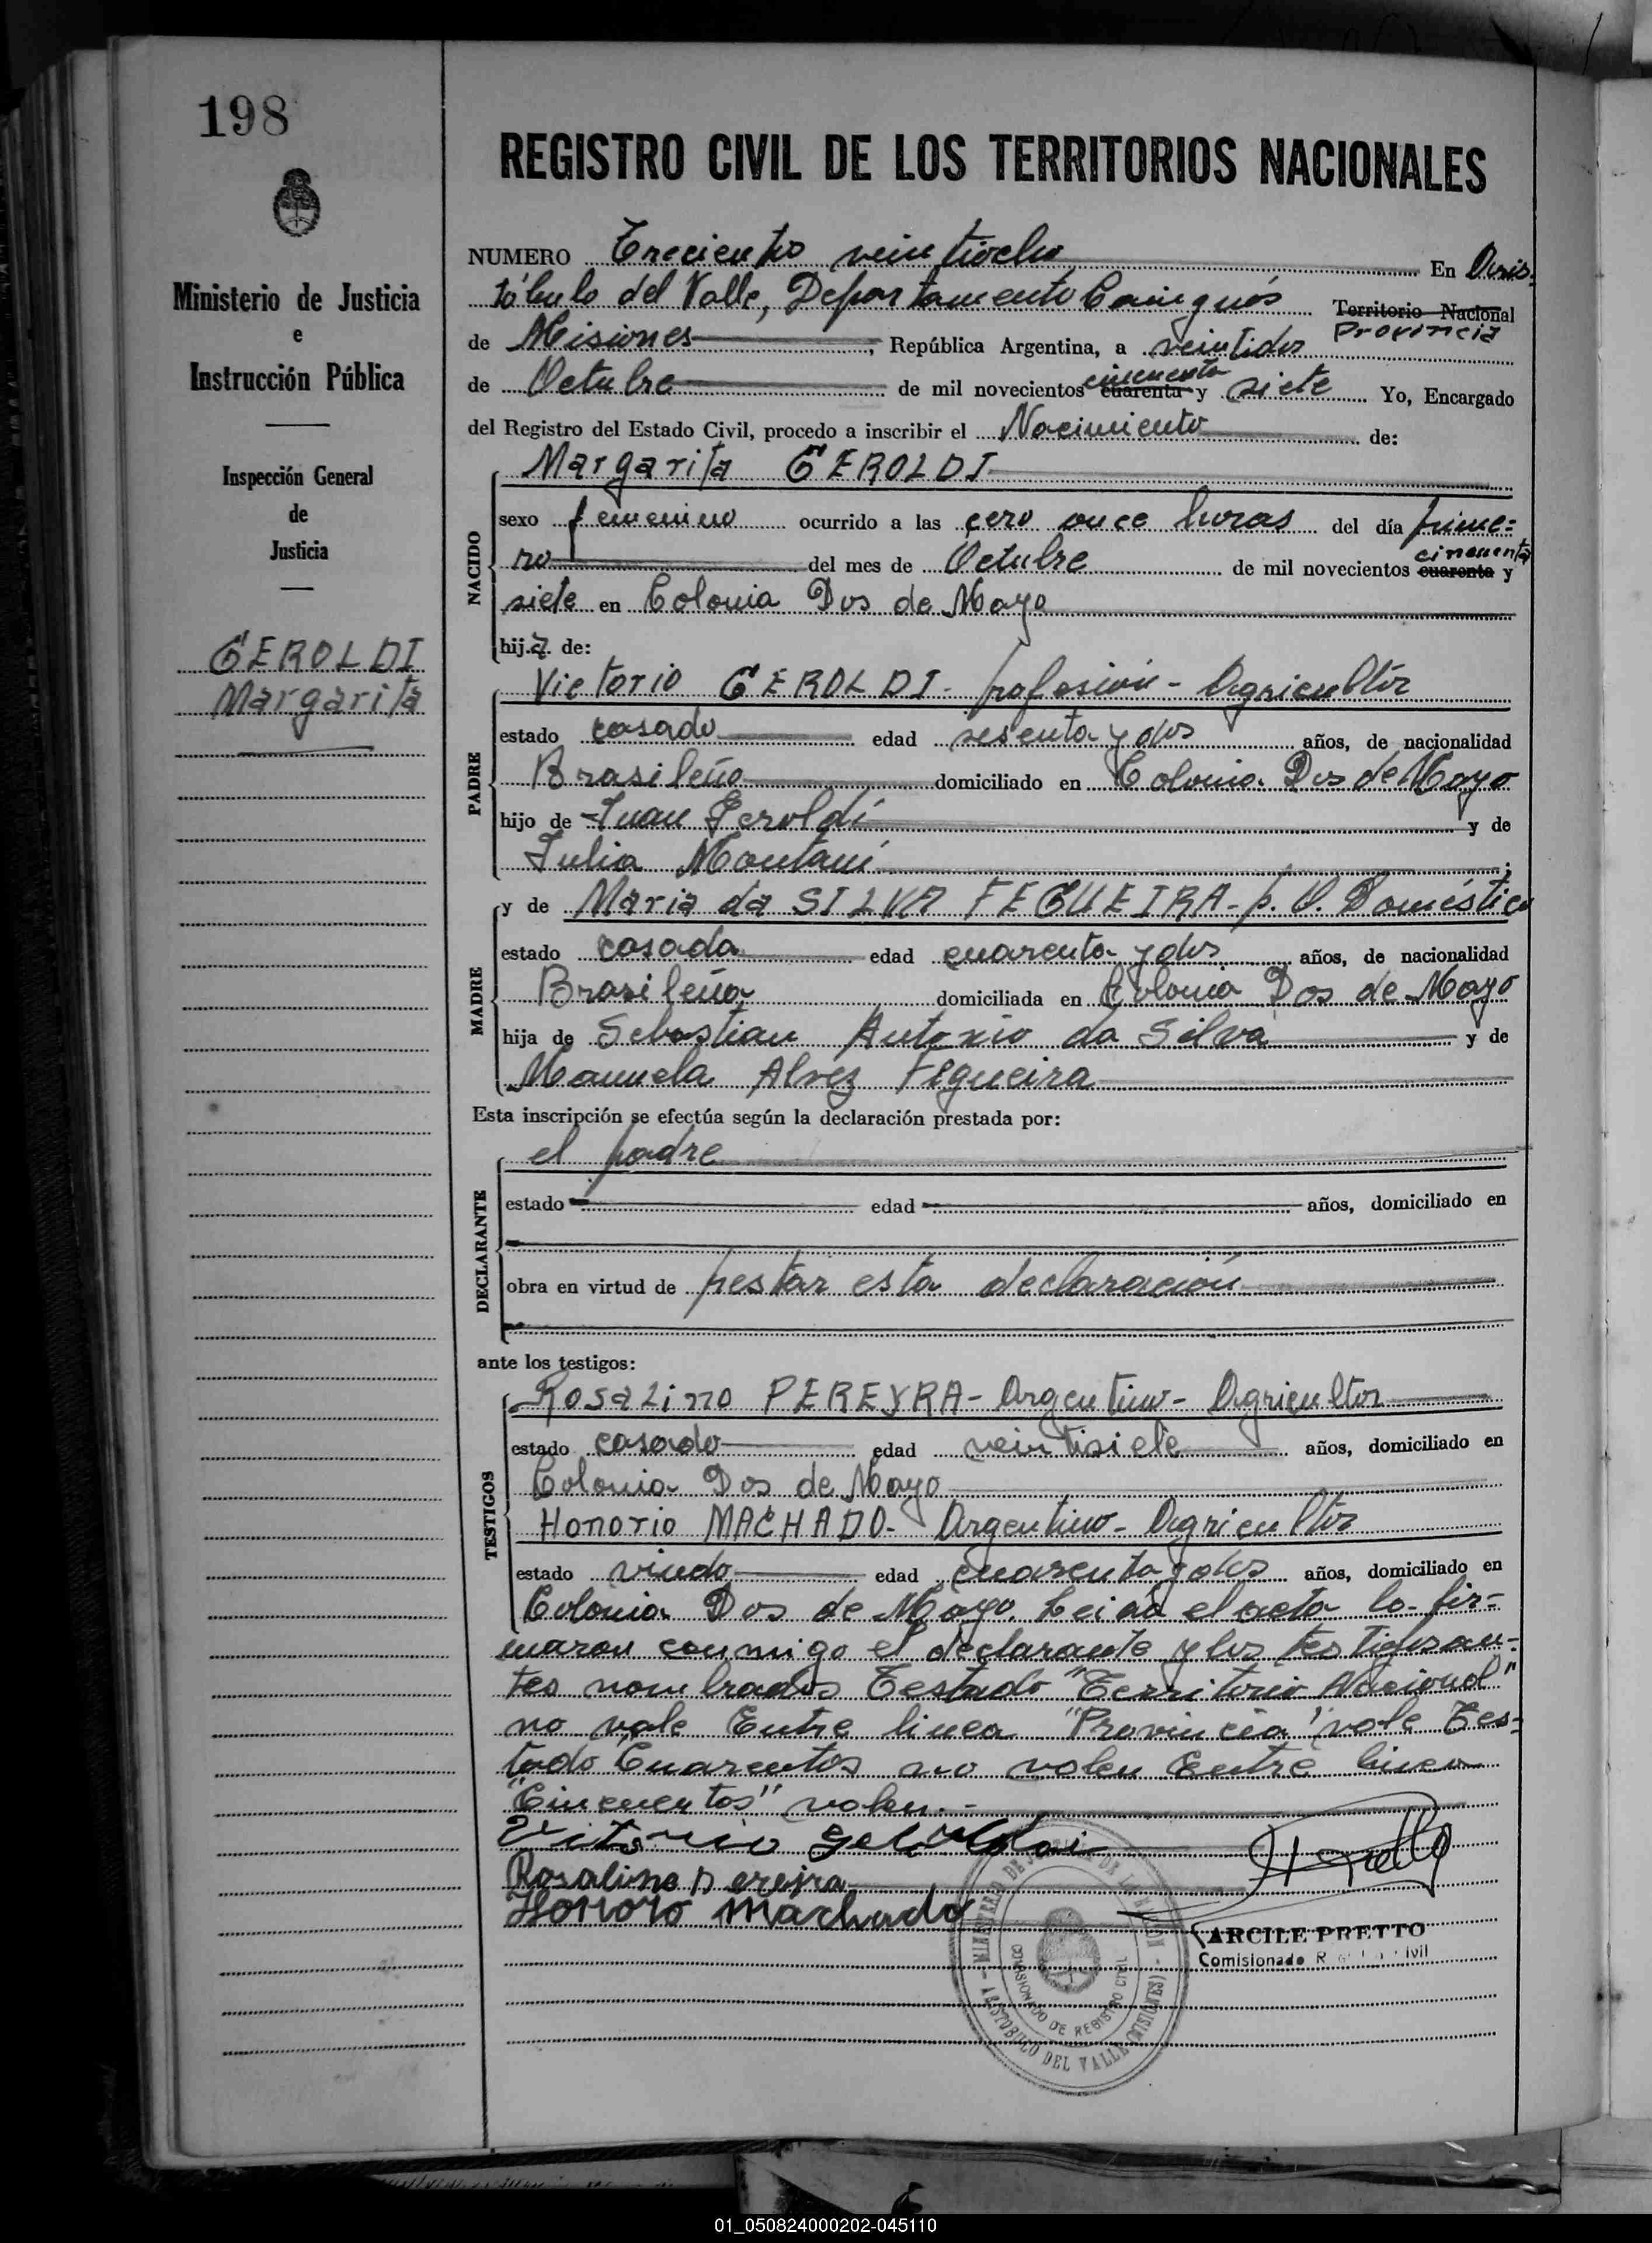 198
REGISTRO CIVIL DE LOS TERRITORIOS NACIONALES
Ministerio de Justicia
e
Instrucción Pública
Inspección General
de
Justicia
GEROLDI
Margarita
NUMERO Trecientos veintiocho En Aris-
tóbulo del Valle, Departamento Cainguás Territorio Nacional
Provincia
de Misiones, República Argentina, a veintidos
de Octubre de mil novecientos cuarenta cincuenta y siete Yo, Encargado
del Registro del Estado Civil, procedo a inscribir el Nacimiento de:
Margarita GEROLDI
NACIDO
sexo femenino ocurrido a las cero once horas del día prime-
ro del mes de Octubre de mil novecientos cuarenta cincuenta y
siete en Colonia Dos de Mayo
hija de:
PADRE
Victorio GEROLDI - profesión - Agricultor
estado casado edad sesenta y dos años, de nacionalidad
Brasileño domiciliado en Colonia Dos de Mayo
hijo de Juan Geroldi y de
Julia Montani;
MADRE
y de Maria da SILVA FEGUEIRA - p. Q. Doméstico
estado casada edad cuarenta y dos años, de nacionalidad
Brasileña domiciliada en Colonia Dos de Mayo
hija de Sebastian Antonio da Silva y de
Manuela Alvez Figueira
Esta inscripción se efectúa según la declaración prestada por:
DECLARANTE
el padre
estado edad años, domiciliado en
obra en virtud de pestar esta declaración
ante los testigos:
TESTIGOS
Rosalino PEREYRA - Argentino - Agricultor
estado casado edad veintisiete años, domiciliado en
Colonia Dos de Mayo
Honorio MACHADO - Argentino - Agricultor
estado viudo edad cuarenta y dos años, domiciliado en
Colonia Dos de Mayo. Leida el acta la fir-
maron conmigo el declarante y los testigos an-
tes nombrados Testado "Territorio Nacional"
no vale Entre linea "Provincia" vale Tes-
tado Cuarentas no valen Entre linea
"Cincuentas" valen.-
Vitorio Geroldi
Rosalino Pereira
Honoro Machado
ARCILE PRETTO
Comisionado Registro Civil
MINISTERIO DE JUSTICIA DE LA NACION
COMISIONADO DE REGISTRO CIVIL
ARISTOBULO DEL VALLE (MISIONES)
01_050824000202-045110